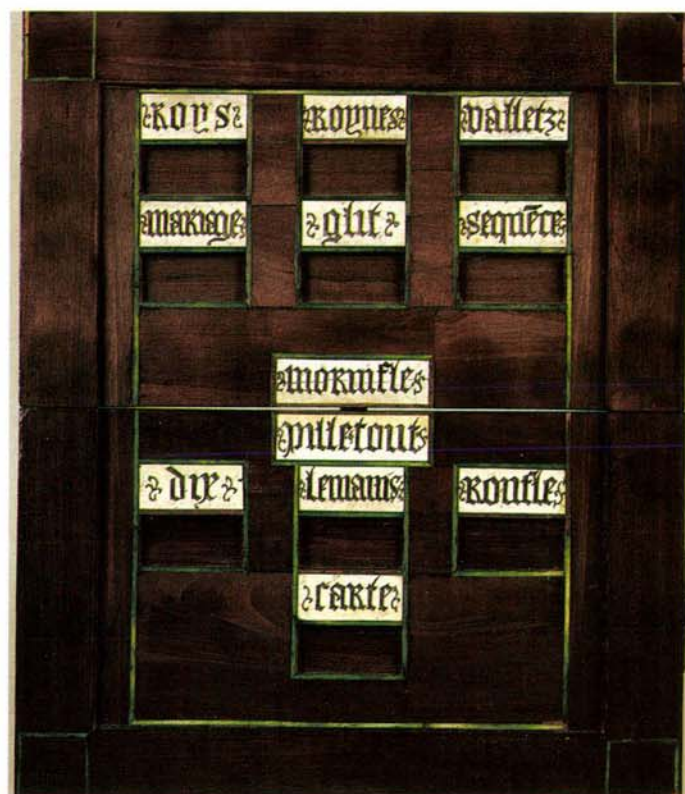 Roys Roynes Valletz
mariage glit sequēce
morinfle
pilletout
dix lemains Ronfle
carte